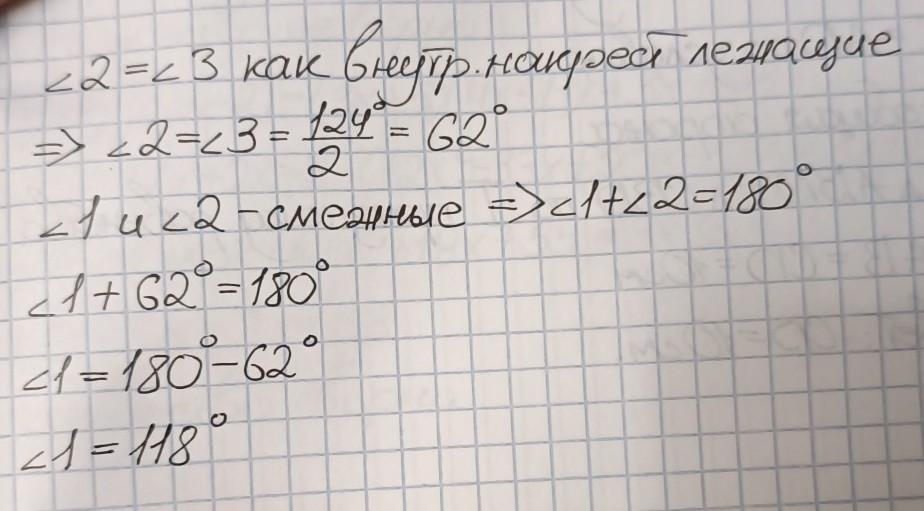 ∠2=∠3 как внутр. накрест лежащие
=> ∠2=∠3 = 124°/2 = 62°
∠1 и ∠2 - смежные => ∠1+∠2=180°
∠1 + 62° = 180°
∠1 = 180° - 62°
∠1 = 118°